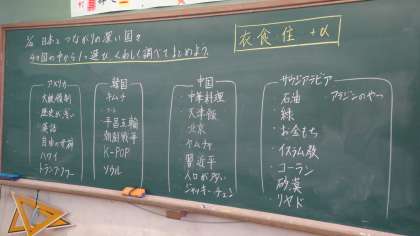 日本とつながりの深い国々
4か国の中から1つ選び、くわしく調べてまとめよう。
衣食住 +α
アメリカ
大統領制
歴史が浅い
英語
自由の女神
ハワイ
トランプタワー
韓国
キムチ
平昌五輪
朝鮮戦争
K-POP
ソウル
中国
中華料理
天津飯
北京
ヤムチャ
習近平
人口が多い
ジャッキーチェン
サウジアラビア
石油 アラジンのやつ
緑
お金もち
イスラム教
コーラン
砂漠
リヤド